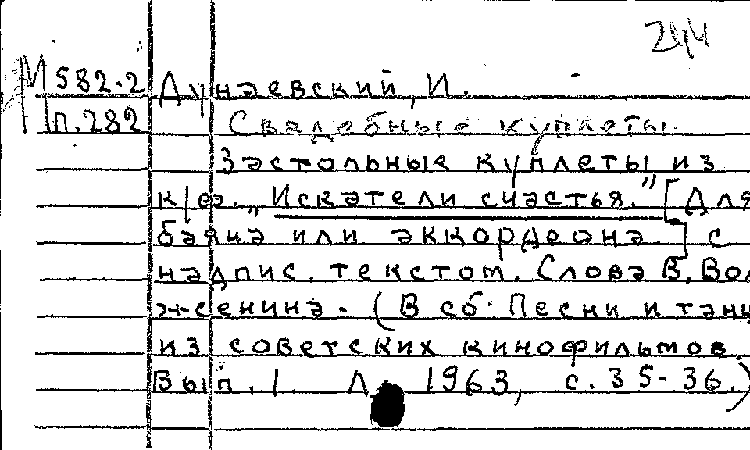 244
М 582.2 Дунаевский, И.
п.282 Свадебные куплеты.
Застольные куплеты из
к/ф. „Искатели счастья." [Для
баяна или аккордеона] с
надпис. текстом. Слова В. Вол
женина. (В сб. Песни и танц
из советских кинофильмов.
Вып. 1. Л. 1963, с. 35-36.)